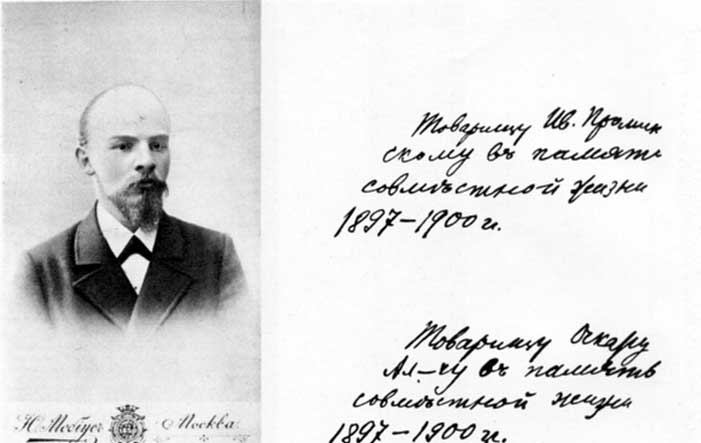 Товарищу Ив. Промин
скому въ память
совмѣстной жизни
1897–1900 г.
Товарищу Оскару
Ал–чу въ память
совмѣстной жизни
1897–1900 г.
Н. Мёбусъ Москва.